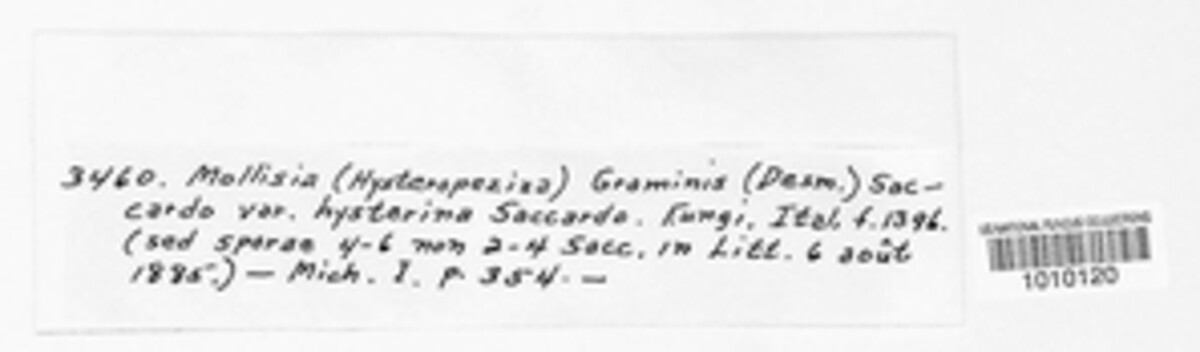 3460. Mollisia (Hysteropezina) Graminis (Desm.) Sac-
cardo var. hysterina Saccardo. Fungi. Ital. f. 1396.
(sed sporae 4-6 non 2-4 Sacc. in Litt. 6 août
1885.) — Mich. I. p. 354. —
US NATIONAL FUNGUS COLLECTIONS
1010120